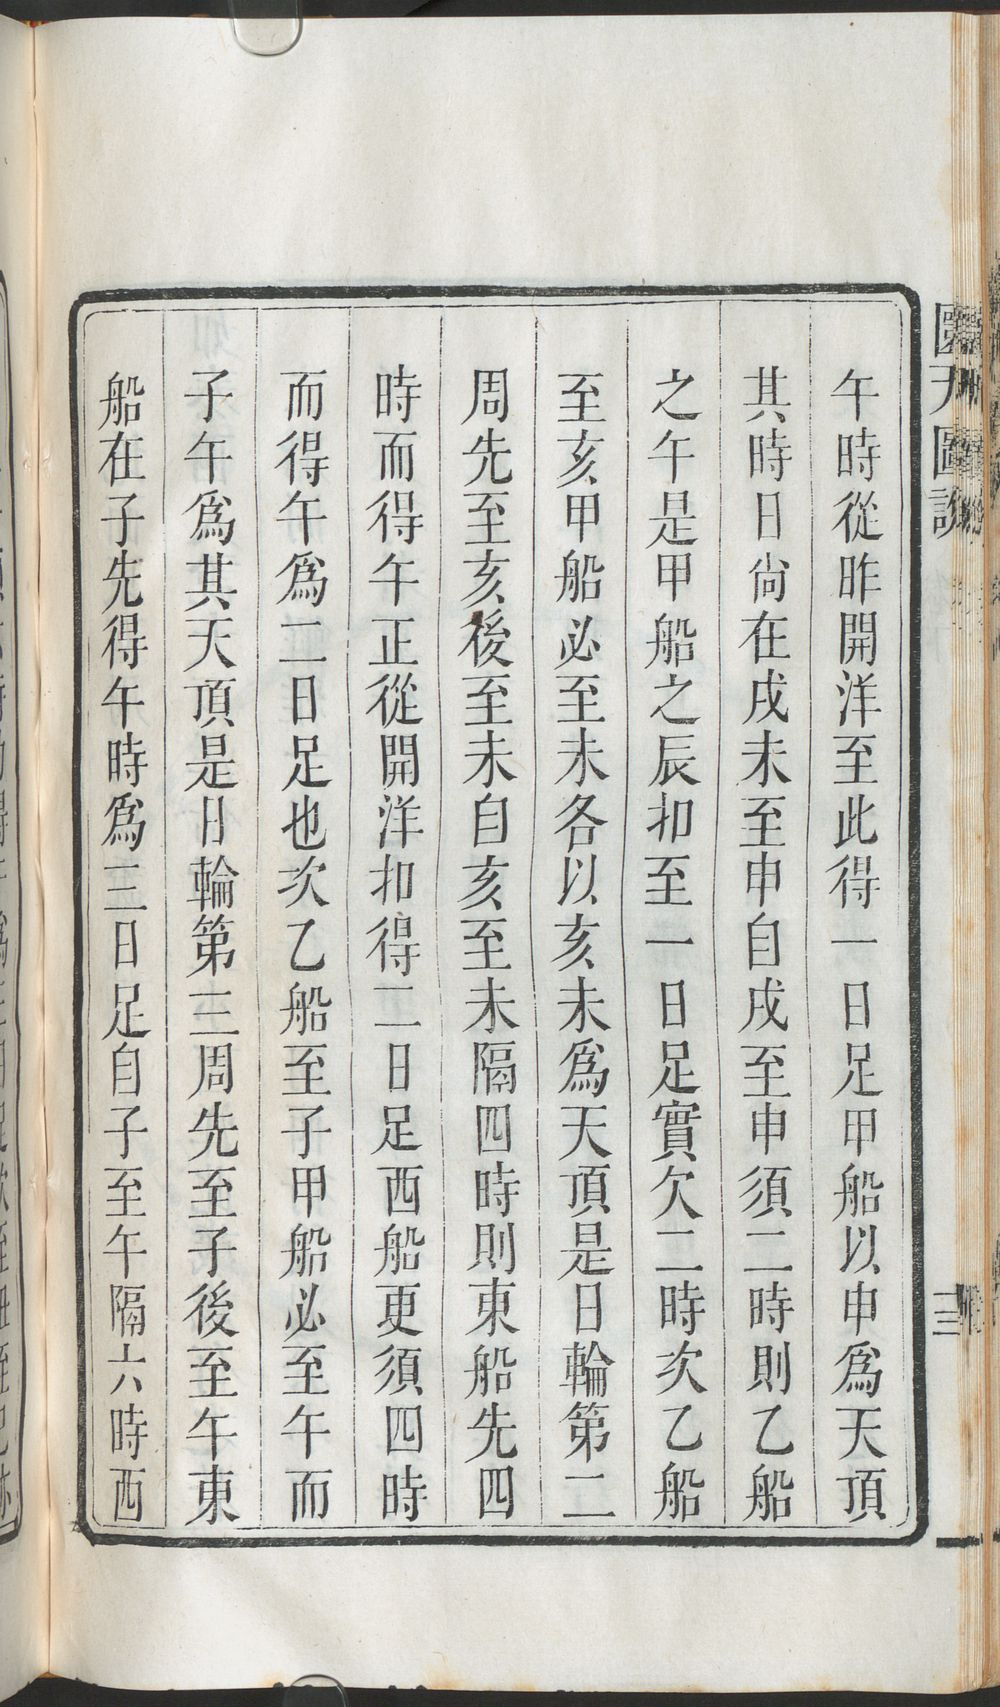 午時從昨開洋至此得一日足甲船以申爲天頂
其時日尙在戌未至申自戌至申須二時則乙船
之午是甲船之辰扣至一日足實欠二時次乙船
至亥甲船必至未各以亥未爲天頂是日輪第二
周先至亥後至未自亥至未隔四時則東船先四
時而得午正從開洋扣得二日足西船更須四時
而得午爲二日足也次乙船至子甲船必至午而
子午爲其天頂是日輪第三周先至子後至午東
船在子先得午時爲三日足自子至午隔六時西